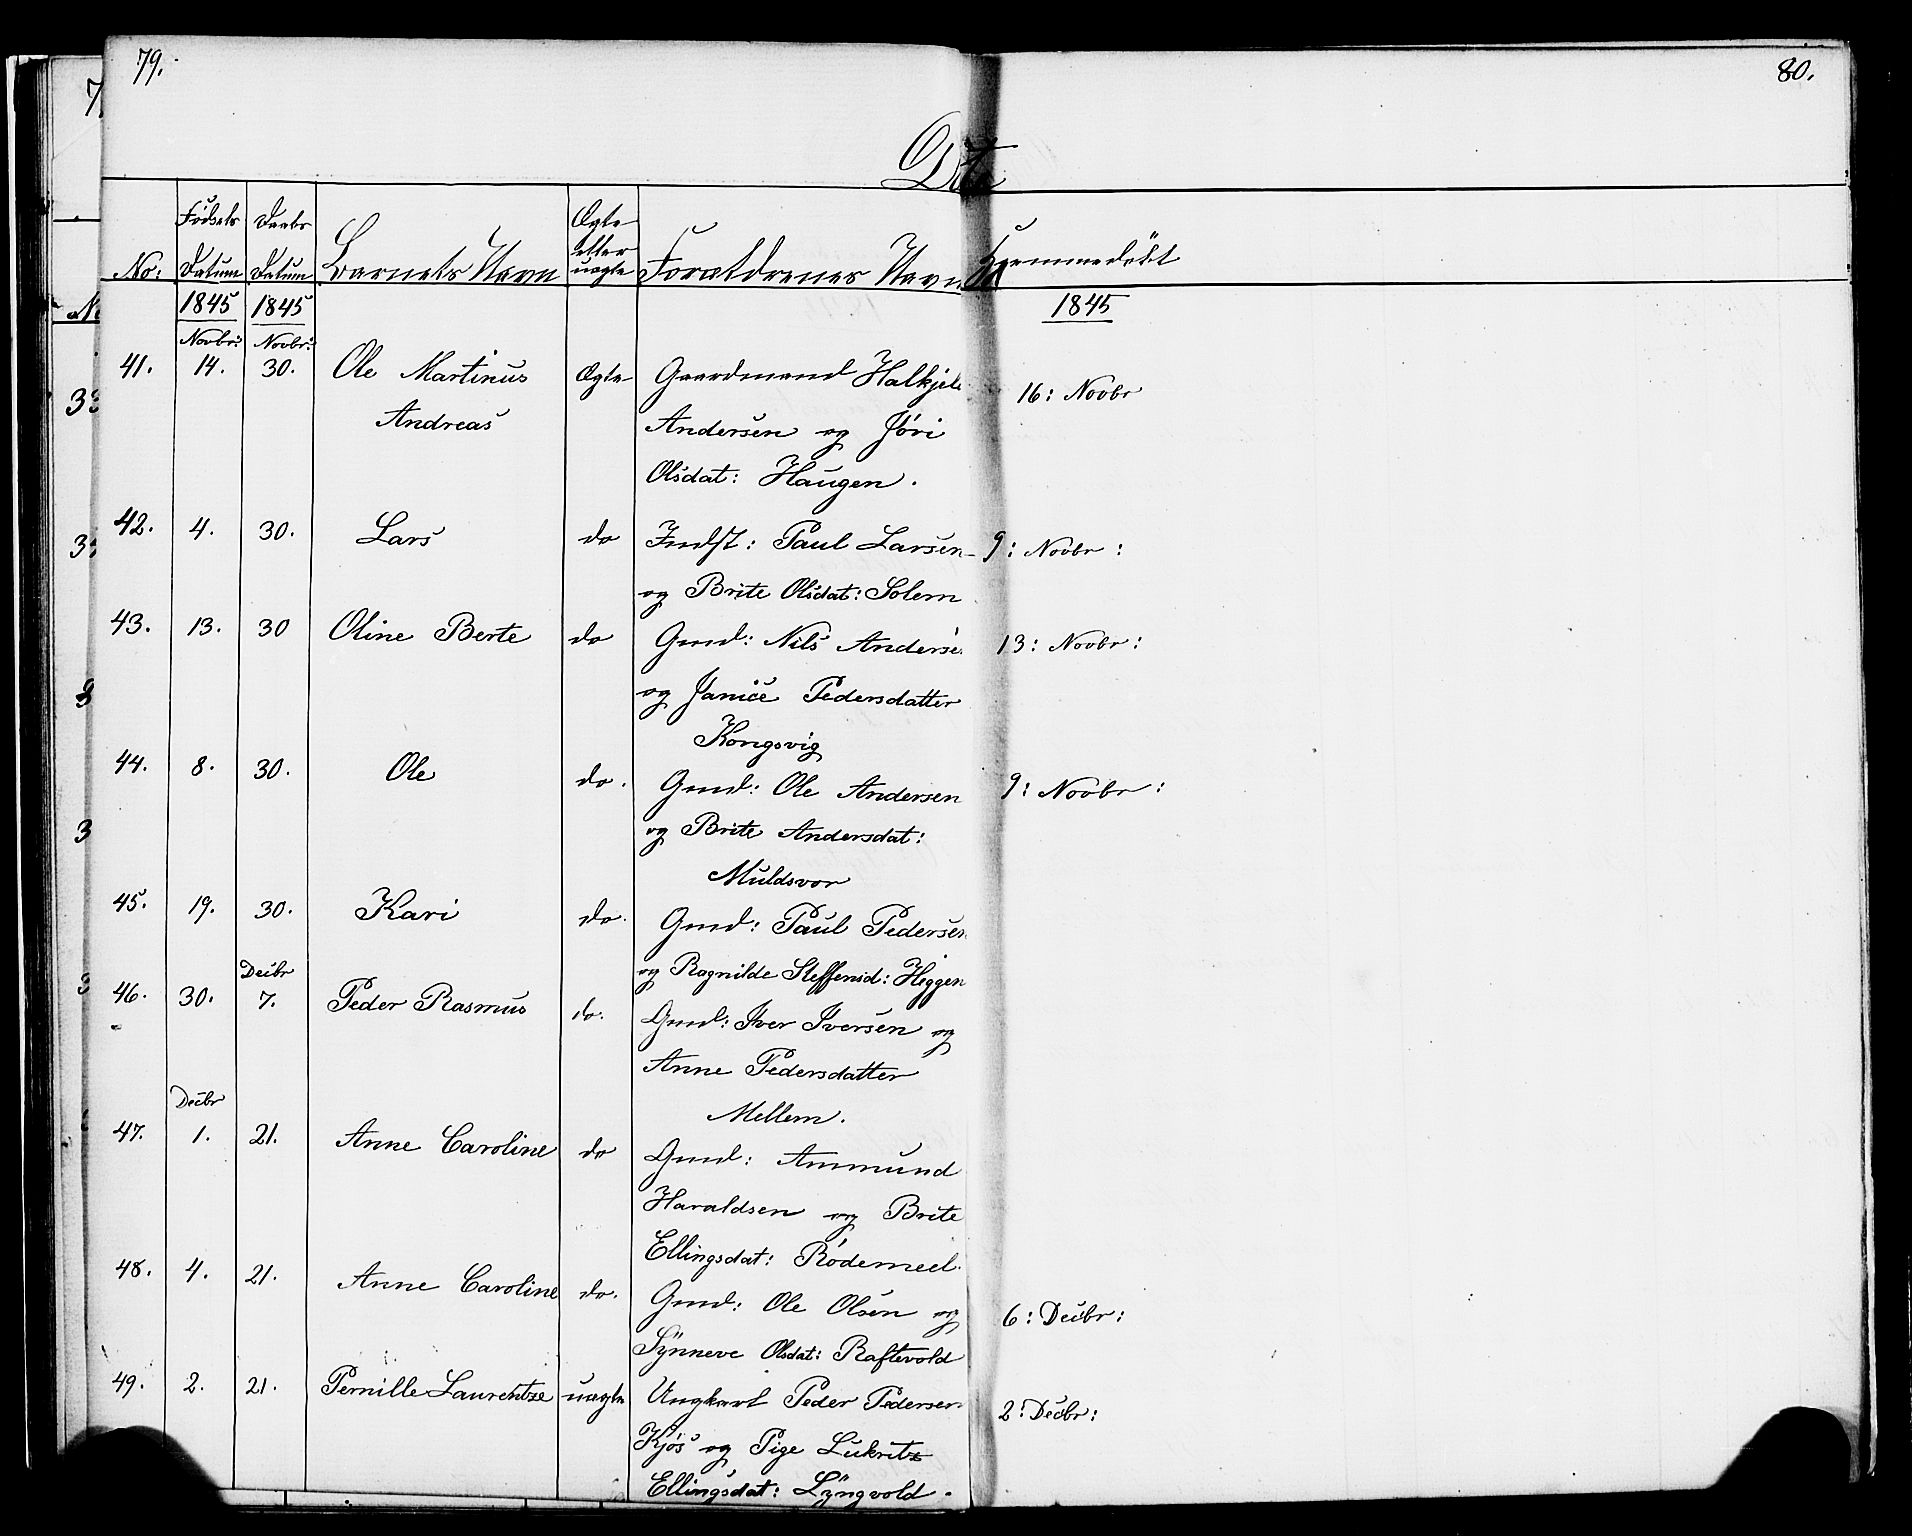 79.
80.
No:
Fødsels Datum
Daabs Datum
Barnets Navn
Ægte eller uægte
Forældrenes Navn
Hjemmedøbt
1845 1845 1845
Novbr: Novbr:
41. 14. 30. Ole Martinus Ægte Gaardmand Halkjel 16: Novbr
Andreas Andersen og Jøri
Olsdat: Haugen.
42. 4. 30. Lars do Indst: Paul Larsen 9: Novbr:
og Brite Olsdat: Solem
43. 13. 30 Oline Berte do Gmd: Nils Anderse 13: Novbr:
og Janice Pedersdatter
Kongsvig
44. 8. 30. Ole do. Gmd: Ole Andersen 9: Novbr:
og Brite Andersdat:
Muldsvor
45. 19. 30. Kari do. Gmd: Paul Pedersen
og Ragnilde Steffensd: Heggen
Decbr
46. 30. 7. Peder Rasmus do. Gmd: Iver Iversen og
Anne Pedersdatter
Mellem.
Decbr
47. 1. 21. Anne Caroline do Gmd: Ammund
Haraldsen og Brite
Ellingsdat: Rödemeel.
48. 4. 21. Anne Caroline do. Gmd: Ole Olsen og 6: Decbr:
Synneve Olsdat: Raftevold
49. 2. 21. Pernille Laurentze uægte Ungkarl Peder Pedersen 2: Decbr:
Kjøs og Pige Lukritz
Ellingsdat: Lyngvold.